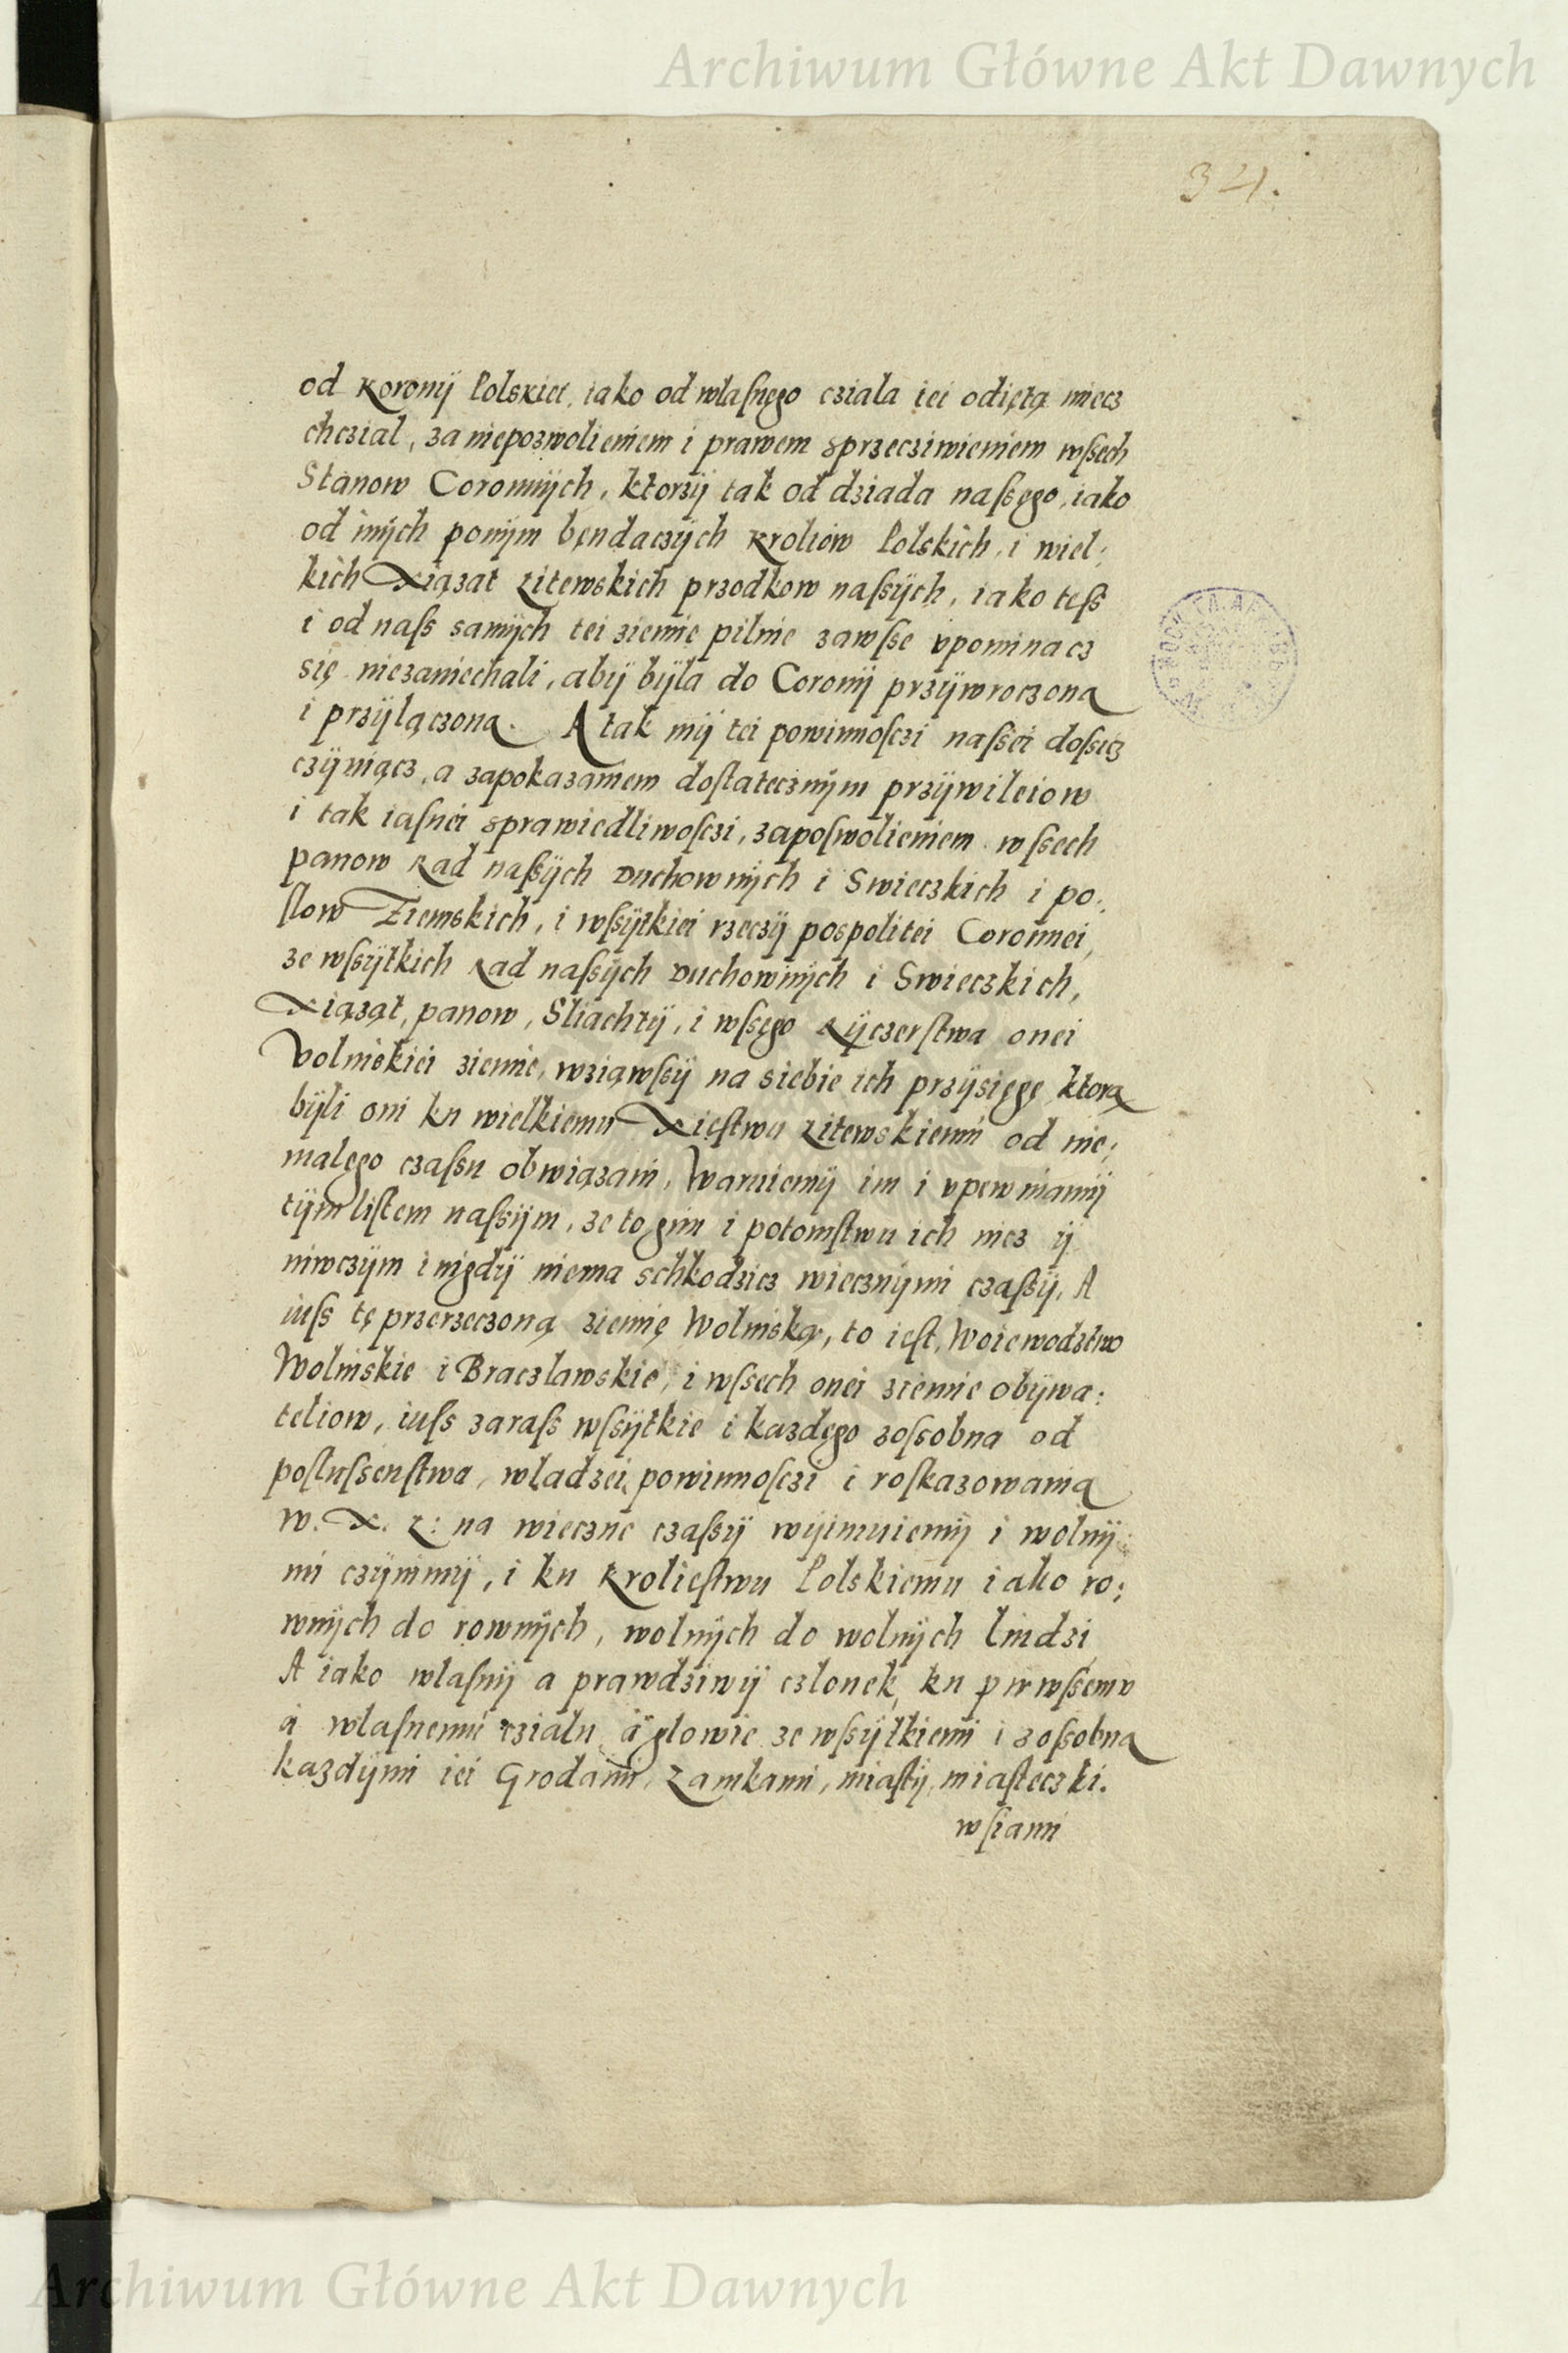 Archiwum Główne Akt Dawnych
34.
od Koronÿ Polskiei, iako od wlaſnęgo cziala iei odiętą miecz
chczial, za niepozwolieniem i prawem sprzecziwieniem wſsech
Stanow Coronnÿch, ktorzÿ tak od dziada naſsęgo, iako
od inÿch ponÿm bęndaczÿch Kroliow Polskich, i wiel:
kich Xiązat Litewskich przodkow naſsÿch, iako teſs
i od naſs samÿch tei ziemie pilnie zawſse vpominacz
się niezaniechali, abÿ bÿla do Coronÿ przÿwroczona
i przÿlączona. A tak mÿ tei powinnoſczi naſsei doſsicz
czÿniącz, a zapokazaniem doſtatecznÿm przÿwileiow
i tak iaſnei sprawiedliwoſczi, zapoſwolieniem wſsech
panow Rad naſsÿch Duchownÿch i Swieczkich i po:
ſlow Ziemskich, i wſsÿtkiei rzeczÿ pospolitei Coronnei,
ze wſsÿtkich Rad naſsÿch Duchownÿch i Swieczkich,
Xiąząt, panow, Sliachtÿ, i wſsęgo Rÿczerſtwa onei
Volinskiei ziemie, wziąwſsÿ na siebie ich przÿsięgę ktorą
bÿli oni ku wielkiemu Xięſtwu Litewskiemu od nie:
malęgo czaſsu obwiązani, Waruiemÿ im i vpewniamÿ
tÿm liſtem naſsÿm, ze to gim i potomſtwu ich nicz ÿ
niwczÿm i nigdÿ niema schkodzicz wiecznÿmi czaſsÿ, A
iuſs tę przerzeczoną ziemię Wolinską, to ieſt, Woiewodztwo
Wolinskie i Braczlawskie, i wſsech onei ziemie obÿwa:
teliow, iuſs zaraſs wſsÿtkie i kazdęgo zoſsobna od
poſluſsenſtwa, wladzei, powinnoſczi i roſkazowania
W. X. L: na wieczne czaſsÿ wÿimuiemÿ i wolnÿ:
mi czÿnimÿ, i ku Krolieſtwu Polskiemu iako ro:
wnÿch do rownÿch, wolnÿch do wolnÿch liudzi
A iako wlaſnÿ a prawdziwÿ czlonek, ku pirwſsemv
a wlaſnemu czialu, a glowie ze wſsÿtkiemi i zoſsobna
kazdÿmi iei Grodami, Zamkami, miaſtÿ, miaſteczki.
wſiami
Archiwum Główne Akt Dawnych